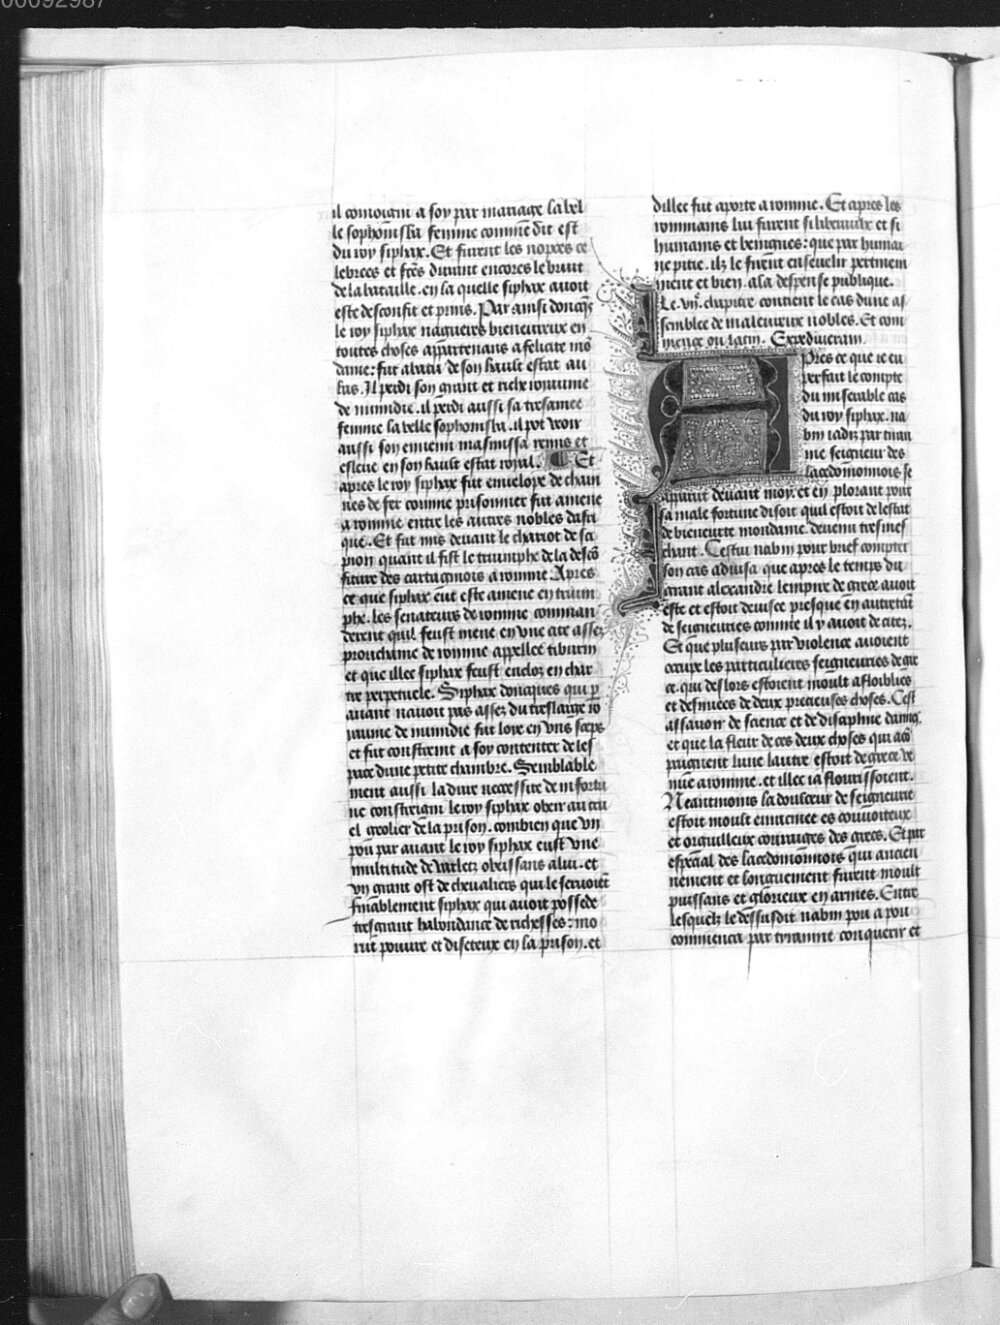 00092987
il conioigni a soy par mariage la bel
le sophonisba femme comme dit est
du roy siphax. Et furent les nopces ce
lebrees et fctes durant encores le bruit
de la bataille. en la quelle siphax auoit
este desconfit et prins. Par ainsi doncqs
le roy siphax nagueires bieneureux en
toutes choses appartenans a felicite mō
daine: fut abatu de son hault estat au
bas. Il perdi son grant et riche royaume
de numidie. il perdi aussi sa tresamee
femme la belle sophonisba. il pot veoir
aussi son ennemi masinissa remis et
esleue en son hault estat royal. ¶ Et
apres le roy siphax fut enuelope de chain
nes de fer comme prisonnier fut amene
a romme entre les autres nobles dafri
que. Et fut mis deuant le chariot de sci
pion quant il fist le triumphe de la descō
fiture des cartaginois a romme. Apres
ce que siphax eut este amene en trium
phe. les senateurs de romme comman
derent quil feust mene en vne cite assez
prouchaine de romme appellee tiburin
et que illec siphax feust enclos en char
tre perpetuele. Siphax doncques qui p
auant nauoit pas assez du treslarge ro
yaume de numidie fut loye en vns seeps
et fut constreint a soy contenter de les
pace dune petite chambre. Semblable
ment aussi la dure necessite de infortu
ne constreigni le roy siphax obeir au cru
el geolier de la prison. combien que vn
pou par auant le roy siphax eust vne
multitude de varletz obeissans a lui. et
vn grant ost de cheualiers qui le seruoiet
finablement siphax qui auoit possede
tresgrant habondance de richesses: mo
rut poure et disetteux en la prison. et
dillec fut aporte a romme. Et apres les
rommains lui furent si liberaulx et si
humains et benignes: que par humai
ne pitie. ilz le firent enseuelir pertinem
ment et bien. a la despense publique.
Le .vije. chapitre contient le cas dune as
semblee de maleureux nobles. Et com
mence ou latin. Expediueram.
Apres ce que ie eu
perfait le compte
du miserable cas
du roy siphax. na
bin iadiz par tiran
nie seigneur des
lacedomonnois se
apparut deuant moy. et en plorant pour
sa male fortune disoit quil estoit de lestat
de bieneurte mondaine deuenu tresmes
chant. Cestui nabin pour brief compter
son cas aduisa que apres le temps du
grant alexandre lempire de grece auoit
este et estoit deuisee presque en autretāt
de seigneuries comme il y auoit de citez.
Et que plusieurs par violence auoient
occupe les particulieres seigneuries de gre
ce. qui des lors estoient moult afloiblies
et desnuees de deux precieuses choses. Cest
assauoir de science et de discipline darmes.
et que la fleur de ces deux choses qui acō
paignent lune lautre estoit de grece ve
nue a romme. et illec ia flourissoient.
Neantmoins la doulceur de seigneurie
estoit moult enracinee es couuoiteux
et orguilleux couraiges des grecs. Et par
especial des lacedomonnois qui ancien
nement et longuement furent moult
puissans et glorieux en armes. Entre
lesquelz le dessusdit nabin pou a pou
commenca par tyrannie conquerir et